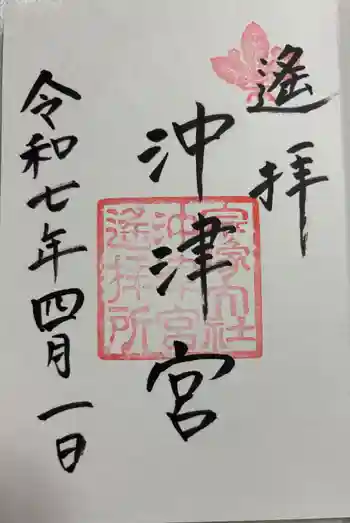 遙拝
沖津宮
宗像大社
沖津宮
遙拝所
令和七年四月一日